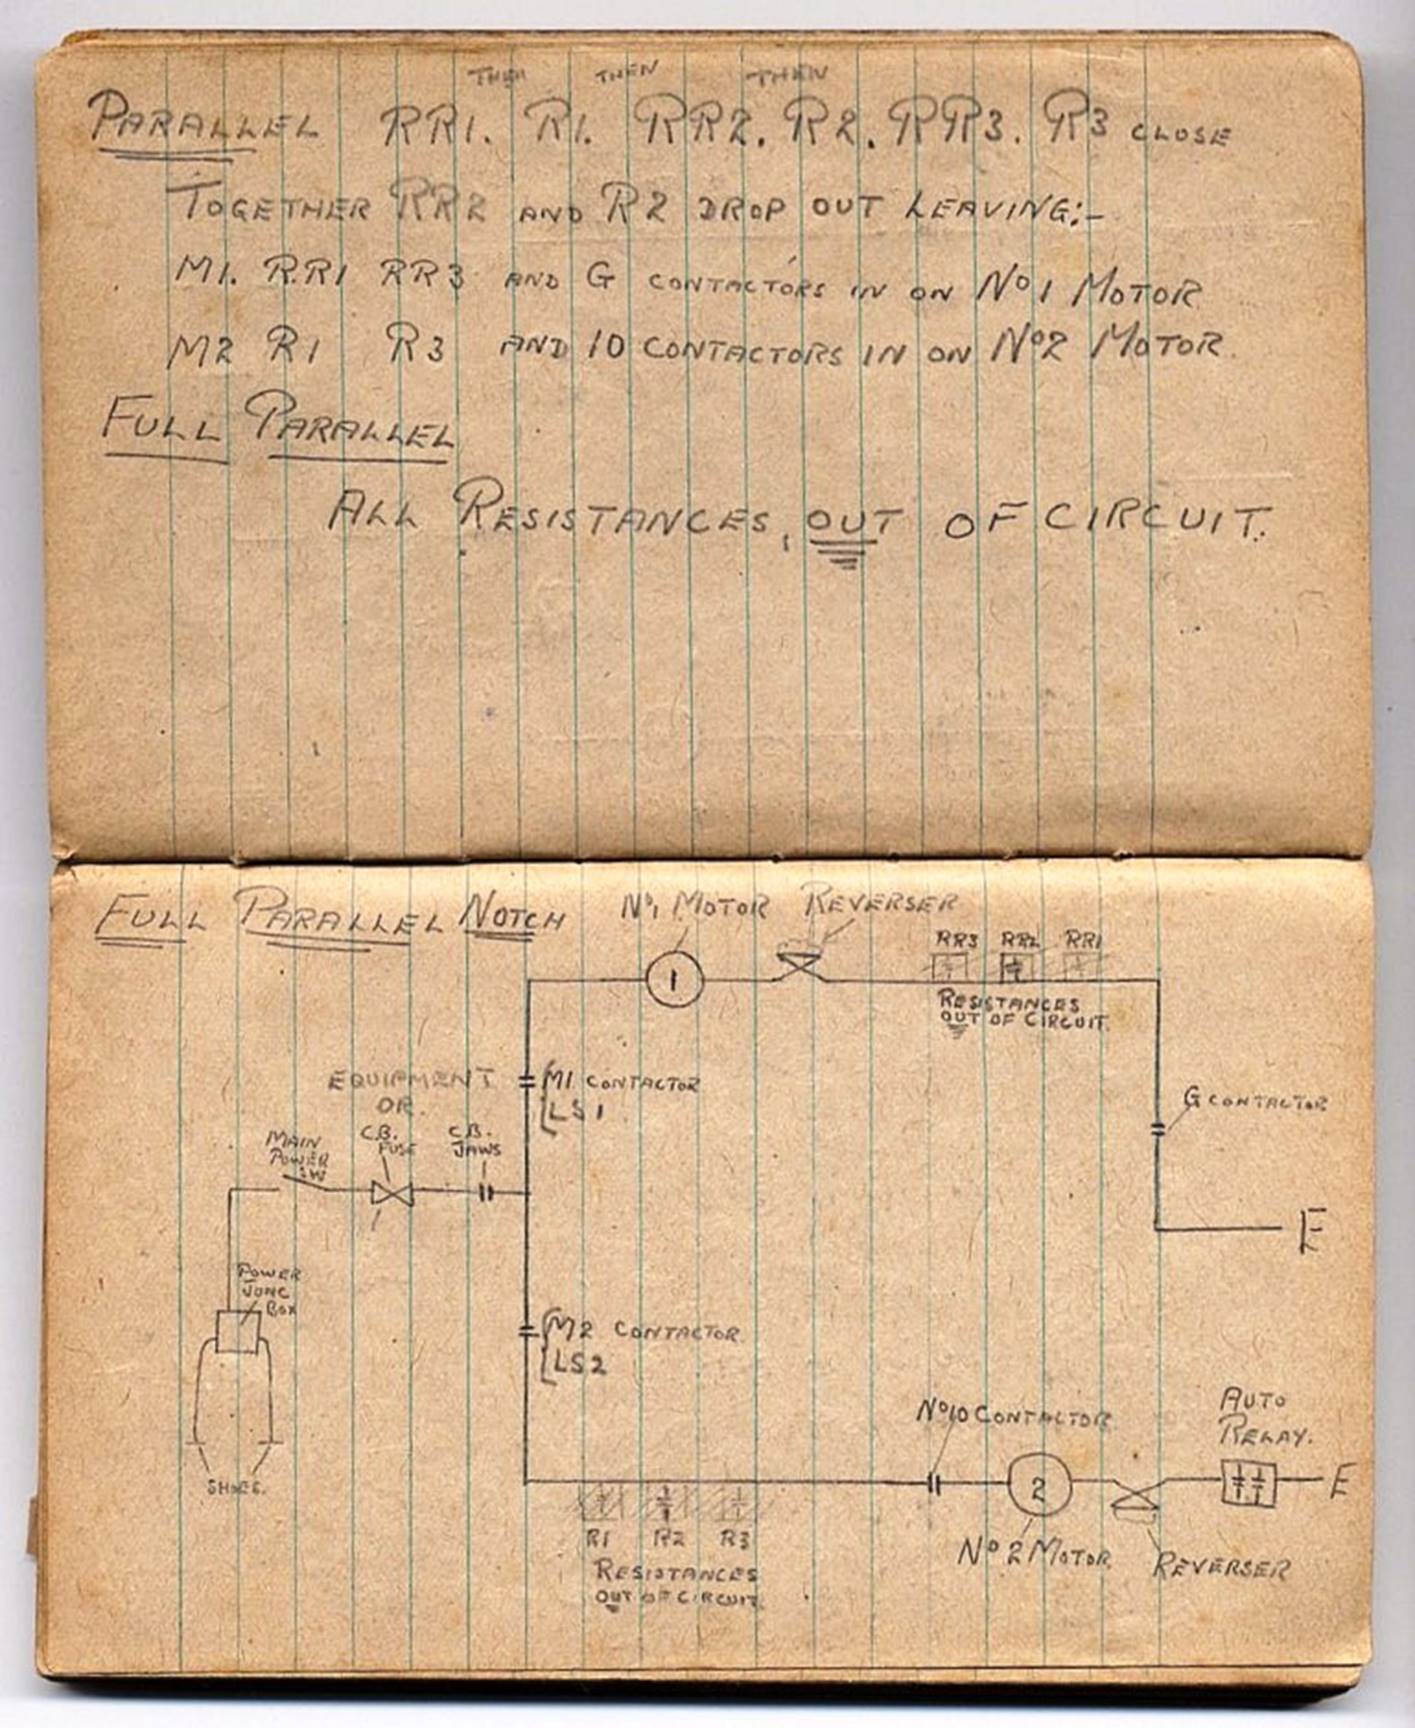 THEN THEN THEN
PARALLEL RR1. R1. RR2. R2. RR3. R3 CLOSE
TOGETHER RR2 AND R2 DROP OUT LEAVING:-
M1. RR1 RR3 AND G CONTACTORS IN ON No1 MOTOR
M2 R1 R3 AND 10 CONTACTORS IN ON No2 MOTOR.
FULL PARALLEL
ALL RESISTANCES, OUT OF CIRCUIT.
FULL PARALLEL NOTCH
No1 MOTOR
REVERSER
1
RR3 RR2 RR1
RESISTANCES
OUT OF CIRCUIT.
EQUIPMENT
OR.
M1 CONTACTOR
LS1
G CONTACTOR
MAIN
POWER
SW
C.B.
FUSE
C.B.
JAWS
E
POWER
JUNC
BOX
SHOES.
M2 CONTACTOR
LS2
No10 CONTACTOR
AUTO
RELAY.
2
E
R1 R2 R3
RESISTANCES
OUT OF CIRCUIT.
No 2 MOTOR
REVERSER